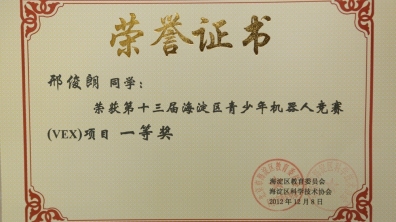 荣誉证书
邢俊朗 同学：
荣获第十三届海淀区青少年机器人竞赛
(VEX)项目 一等奖
海淀区教育委员会
海淀区科学技术协会
2012年12月8日